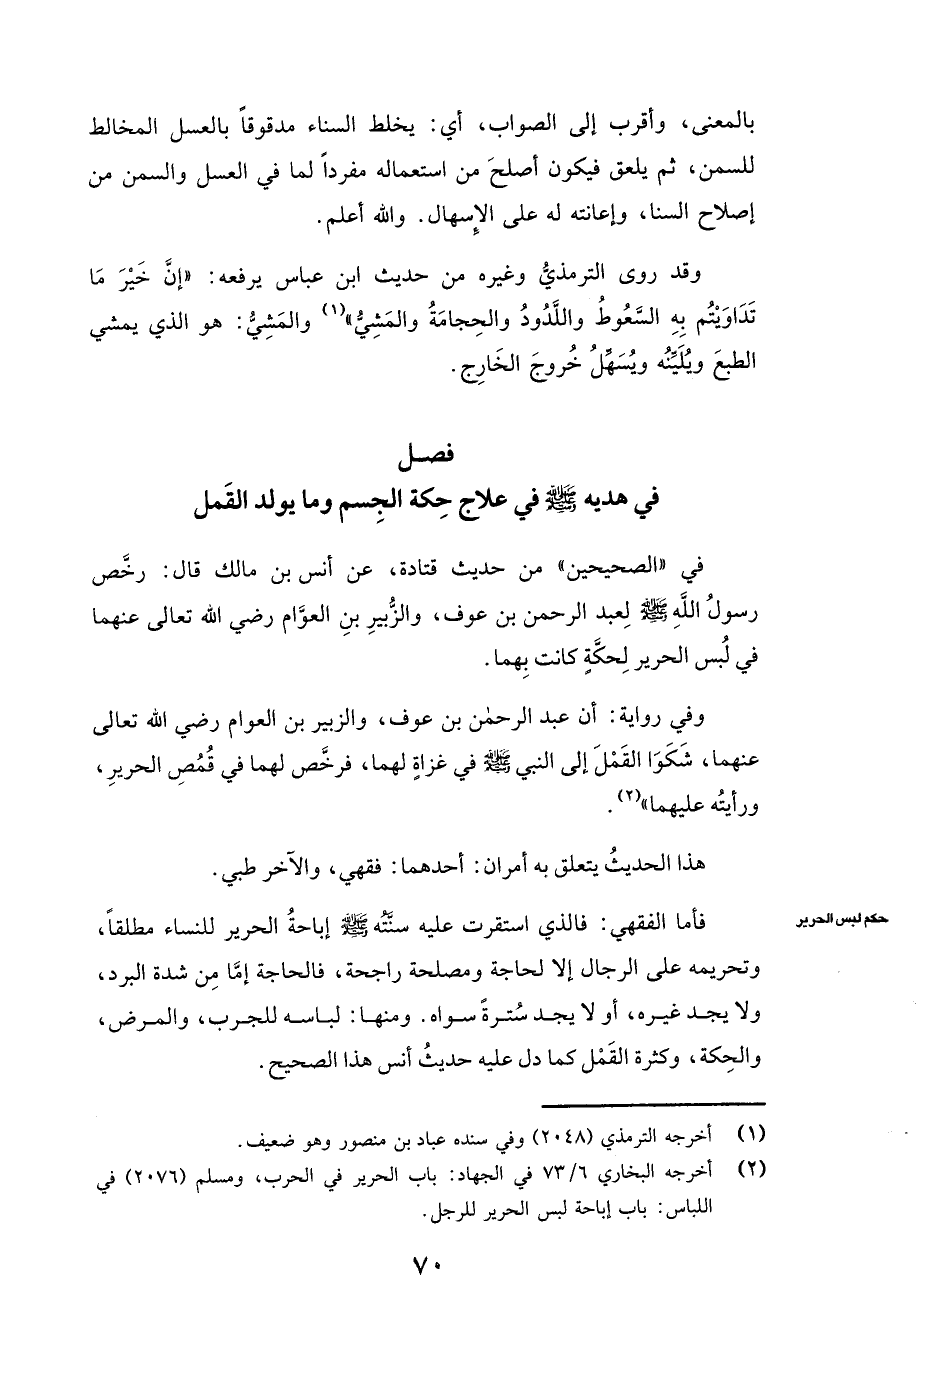 بالمعنى، وأقرب إلى الصواب، أي: يخلط السناء مدقوقاً بالعسل المخالط
للسمن، ثم يلعق فيكون أصلحَ من استعماله مفرداً لما في العسل والسمن من
إصلاح السنا، وإعانته له على الإسهال. والله أعلم.
وقد روى الترمذيُّ وغيره من حديث ابن عباس يرفعه: «إنَّ خَيْرَ مَا
تَدَاوَيْتُم بِهِ السَّعُوطُ واللَّدُودُ والحِجامَةُ والمَشِيُّ»(١) والمَشِيُّ: هو الذي يمشي
الطبعَ ويُلَيِّنُه ويُسَهِّلُ خُروجَ الخَارِج.
فصـل
في هديه ﷺ في علاج حِكة الجِسم وما يولد القَمل
في «الصحيحين» من حديث قتادة، عن أنس بن مالك قال: رخَّص
رسولُ اللَّهِ ﷺ لِعبد الرحمن بن عوف، والزُّبيرِ بنِ العوَّام رضي الله تعالى عنهما
في لُبس الحرير لِحكَّةٍ كانت بِهما.
وفي رواية: أن عبد الرحمٰن بن عوف، والزبير بن العوام رضي الله تعالى
عنهما، شَكَوَا القَمْلَ إلى النبي ﷺ في غزاةٍ لهما، فرخَّص لهما في قُمُصِ الحريرِ،
ورأيتُه عليهما»(٢).
هذا الحديثُ يتعلق به أمران: أحدهما: فقهي، والآخر طبي.
حكم لبس الحرير
فأما الفقهي: فالذي استقرت عليه سنَّتُه ﷺ إباحةُ الحرير للنساء مطلقاً،
وتحريمه على الرجال إلا لحاجة ومصلحة راجحة، فالحاجة إمَّا مِن شدة البرد،
ولا يجـد غيره، أو لا يجـد سُتـرةً سـواه. ومنهـا: لبـاسـه للجـرب، والمـرض،
والحِكة، وكثرة القَمْل كما دل عليه حديثُ أنس هذا الصحيح.
(١) أخرجه الترمذي (٢٠٤٨) وفي سنده عباد بن منصور وهو ضعيف.
(٢) أخرجه البخاري ٧٣/٦ في الجهاد: باب الحرير في الحرب، ومسلم (٢٠٧٦) في
اللباس: باب إباحة لبس الحرير للرجل.
٧٠